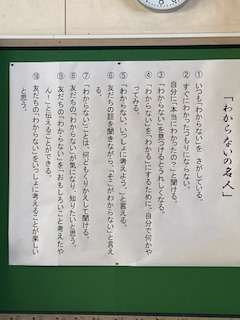 「わからないの名人」
① いつも「わからない」を さがしている。
② すぐにわかったつもりにならない。
自分に「本当にわかったの?」と聞ける。
③ 「わからない」を見つけるとうれしくなる。
④ 「わからない」を「わかる」にするために、自分で何かや
ってみる。
⑤ 「わからない。いっしょに考えよう。」と言える。
⑥ 友だちの話を聞きながら「そこがわからない」と言え
る。
⑦ 「わからない」ことは、何どもくりかえして聞ける。
⑧ 友だちの「わからない」が気になり、知りたいと思う。
⑨ 友だちの「わからない」を「おもしろいこと考えたや
ん!」と伝えることができる。
⑩ 友だちの「わからない」をいっしょに考えることが楽しい
と思う。